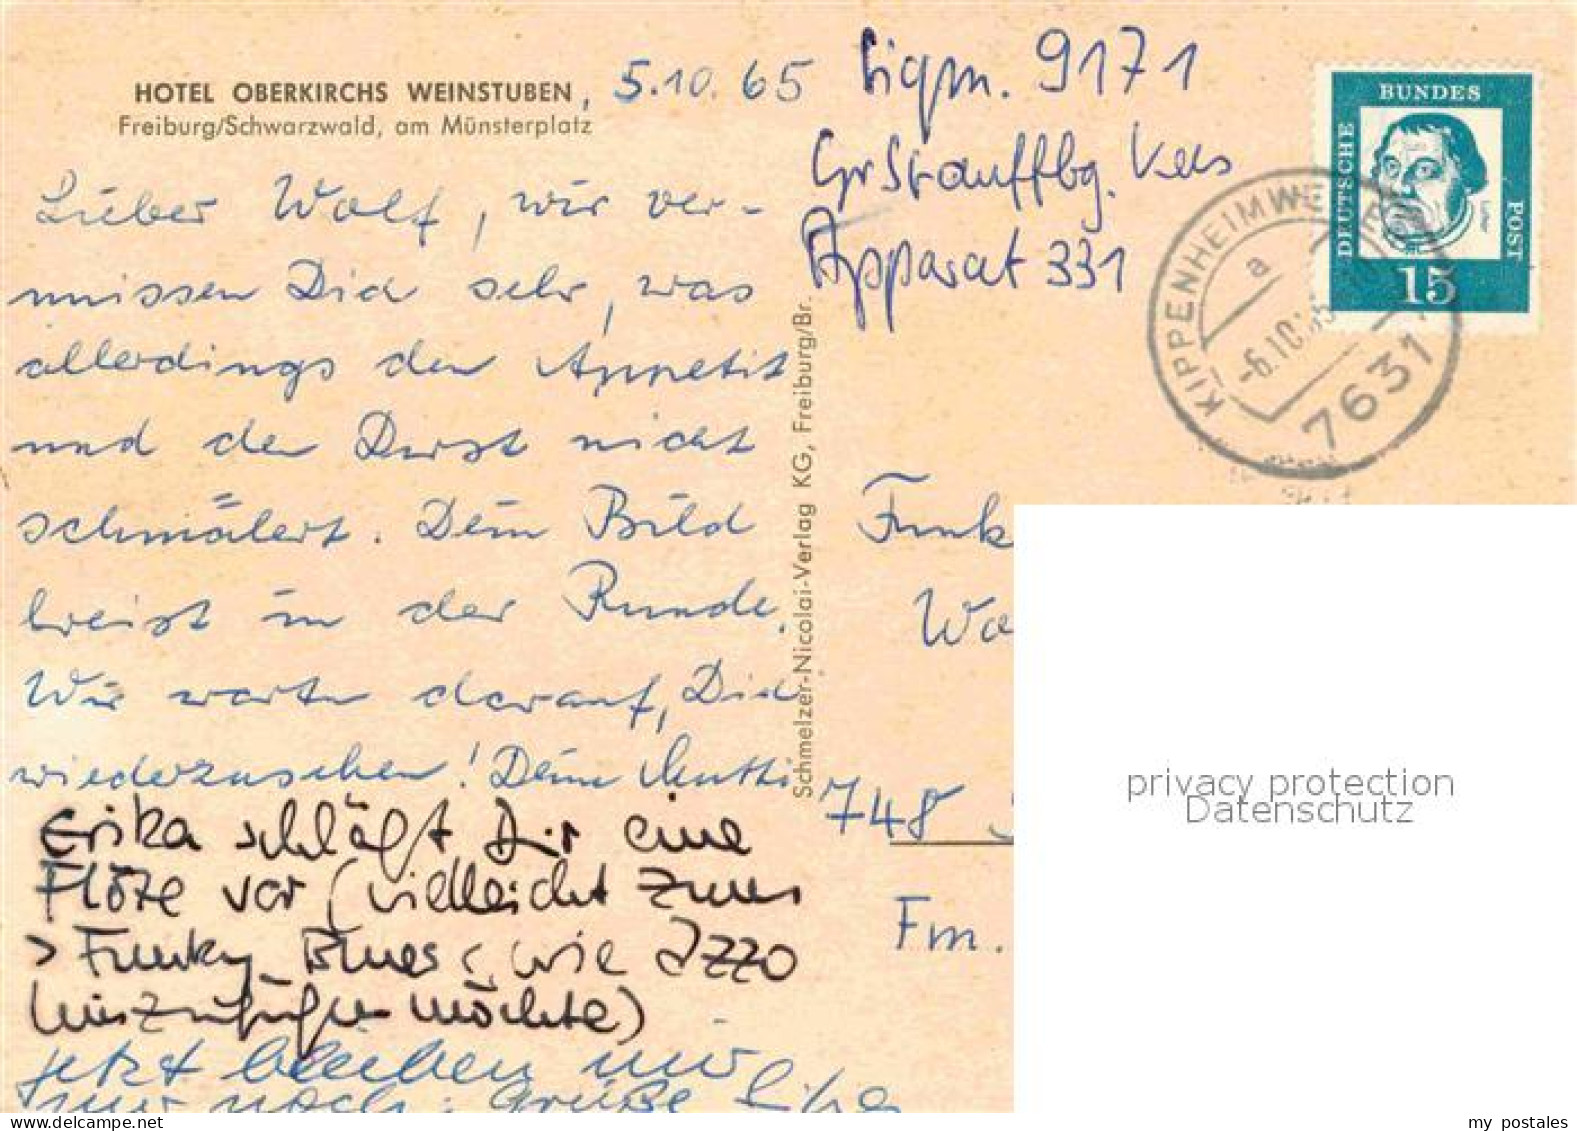 HOTEL OBERKIRCHS WEINSTUBEN, 5.10.65
Freiburg/Schwarzwald, am Münsterplatz
Lieber Wolf, wir ver-
missen Dich sehr, was
allerdings den Appetit
und den Durst nicht
schmälert. Dein Bild
kreist in der Runde.
Wir warten darauf, Dich
wiederzusehen! Deine Mutti
Erika schlägt Dir eine
Flöte vor (vielleicht zum
> Funky-Blues <, wie Izzo
hinzufügen möchte)
jetzt bleiben mir
nur noch: Grüße
Schmelzer-Nicolai-Verlag KG, Freiburg/Br.
Sigm. 9171
Gr Stauffbg. Kas
Apparat 331
BUNDES
DEUTSCHE
POST
Luther
15
KIPPENHEIMWEILER
a
-6.10.65
7631
Funk
Wo
748
Fm.
privacy protection
Datenschutz
my postales